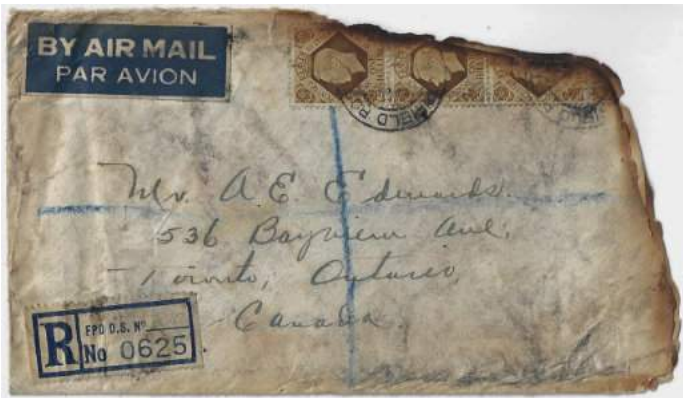 BY AIR MAIL
PAR AVION
FIELD PO
Mr. A. E. Edwards.
536 Bayview Ave.
Toronto, Ontario,
Canada.
R
FPO O.S. Nº
No 0625